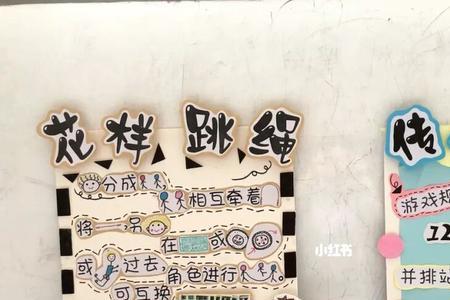 花样跳绳
分成，相互牵着
将另在或
或过去，角色进行
可互换
小红书
传
游戏规
12
并排站